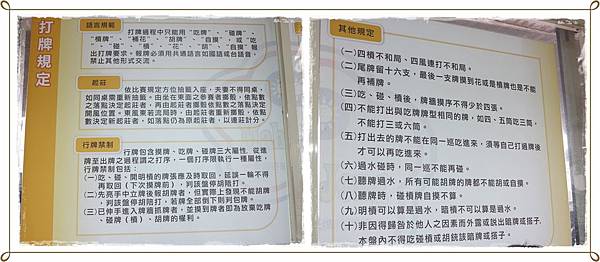 打牌規定
語言規範
打牌過程中只能用"吃牌"、"碰牌"、
"槓牌"、"補花"、"胡牌"、"自摸"或"吃
"、"碰"、"槓"、"花"、"胡"、"自摸"報
出打牌要求，報牌必須用共通語言如國語或台語音，
禁止其他形式交流。
起莊
依比賽規定方位抽籤入座，夫妻不得同桌，
如同桌需重新抽籤，由坐在東面之參賽者擲骰，依點數
之落點決定起莊者，再由起莊者擲骰依點數之落點決定
開風位置。東風東若流局時，由起莊者重新擲骰，依點
數決定新起莊者，如落點仍為原起莊者，以連莊計分。
行牌禁制
行牌包含摸牌、吃牌、碰牌三大屬性，從進
牌至出牌之過程謂之打序，一個打序限執行一種屬性，
行牌禁制包括：
(一)吃、碰、開明槓的牌張應及時取回，延誤一輪不得
再取回(下次摸牌前)，判該盤停胡陪打。
(二)先亮手中立牌後報胡牌者，但實際上發現不能胡牌
，判該盤停胡陪打，若牌全部倒下則判包牌。
(三)已伸手進入牌牆抓牌者，並摸到牌者即為放棄吃牌
、碰牌(槓)、胡牌的權利。
其他規定
(一)四槓不和局、四風連打不和局。
(二)尾牌留十六支，最後一支牌摸到花或是槓牌也是不能
再補牌。
(三)吃、碰、槓後，牌牆摸序不得少於四張。
(四)不能打出與吃牌牌型相同的牌，如四、五筒吃三筒，
不能打三或六筒。
(五)打出去的牌不能在同一巡吃進來，須等自己打過牌後
才可以再吃進來。
(六)過水碰時，同一巡不能再碰。
(七)聽牌過水，所有可能胡牌的牌都不能胡或自摸。
(八)聽牌時，碰槓牌自摸不算。
(九)明槓可以算是過水，暗槓不可以算是過水。
(十)非因得歸咎於他人之因素而外露或說出暗牌或搭子，
本盤內不得吃碰槓或胡銃該暗牌或搭子。